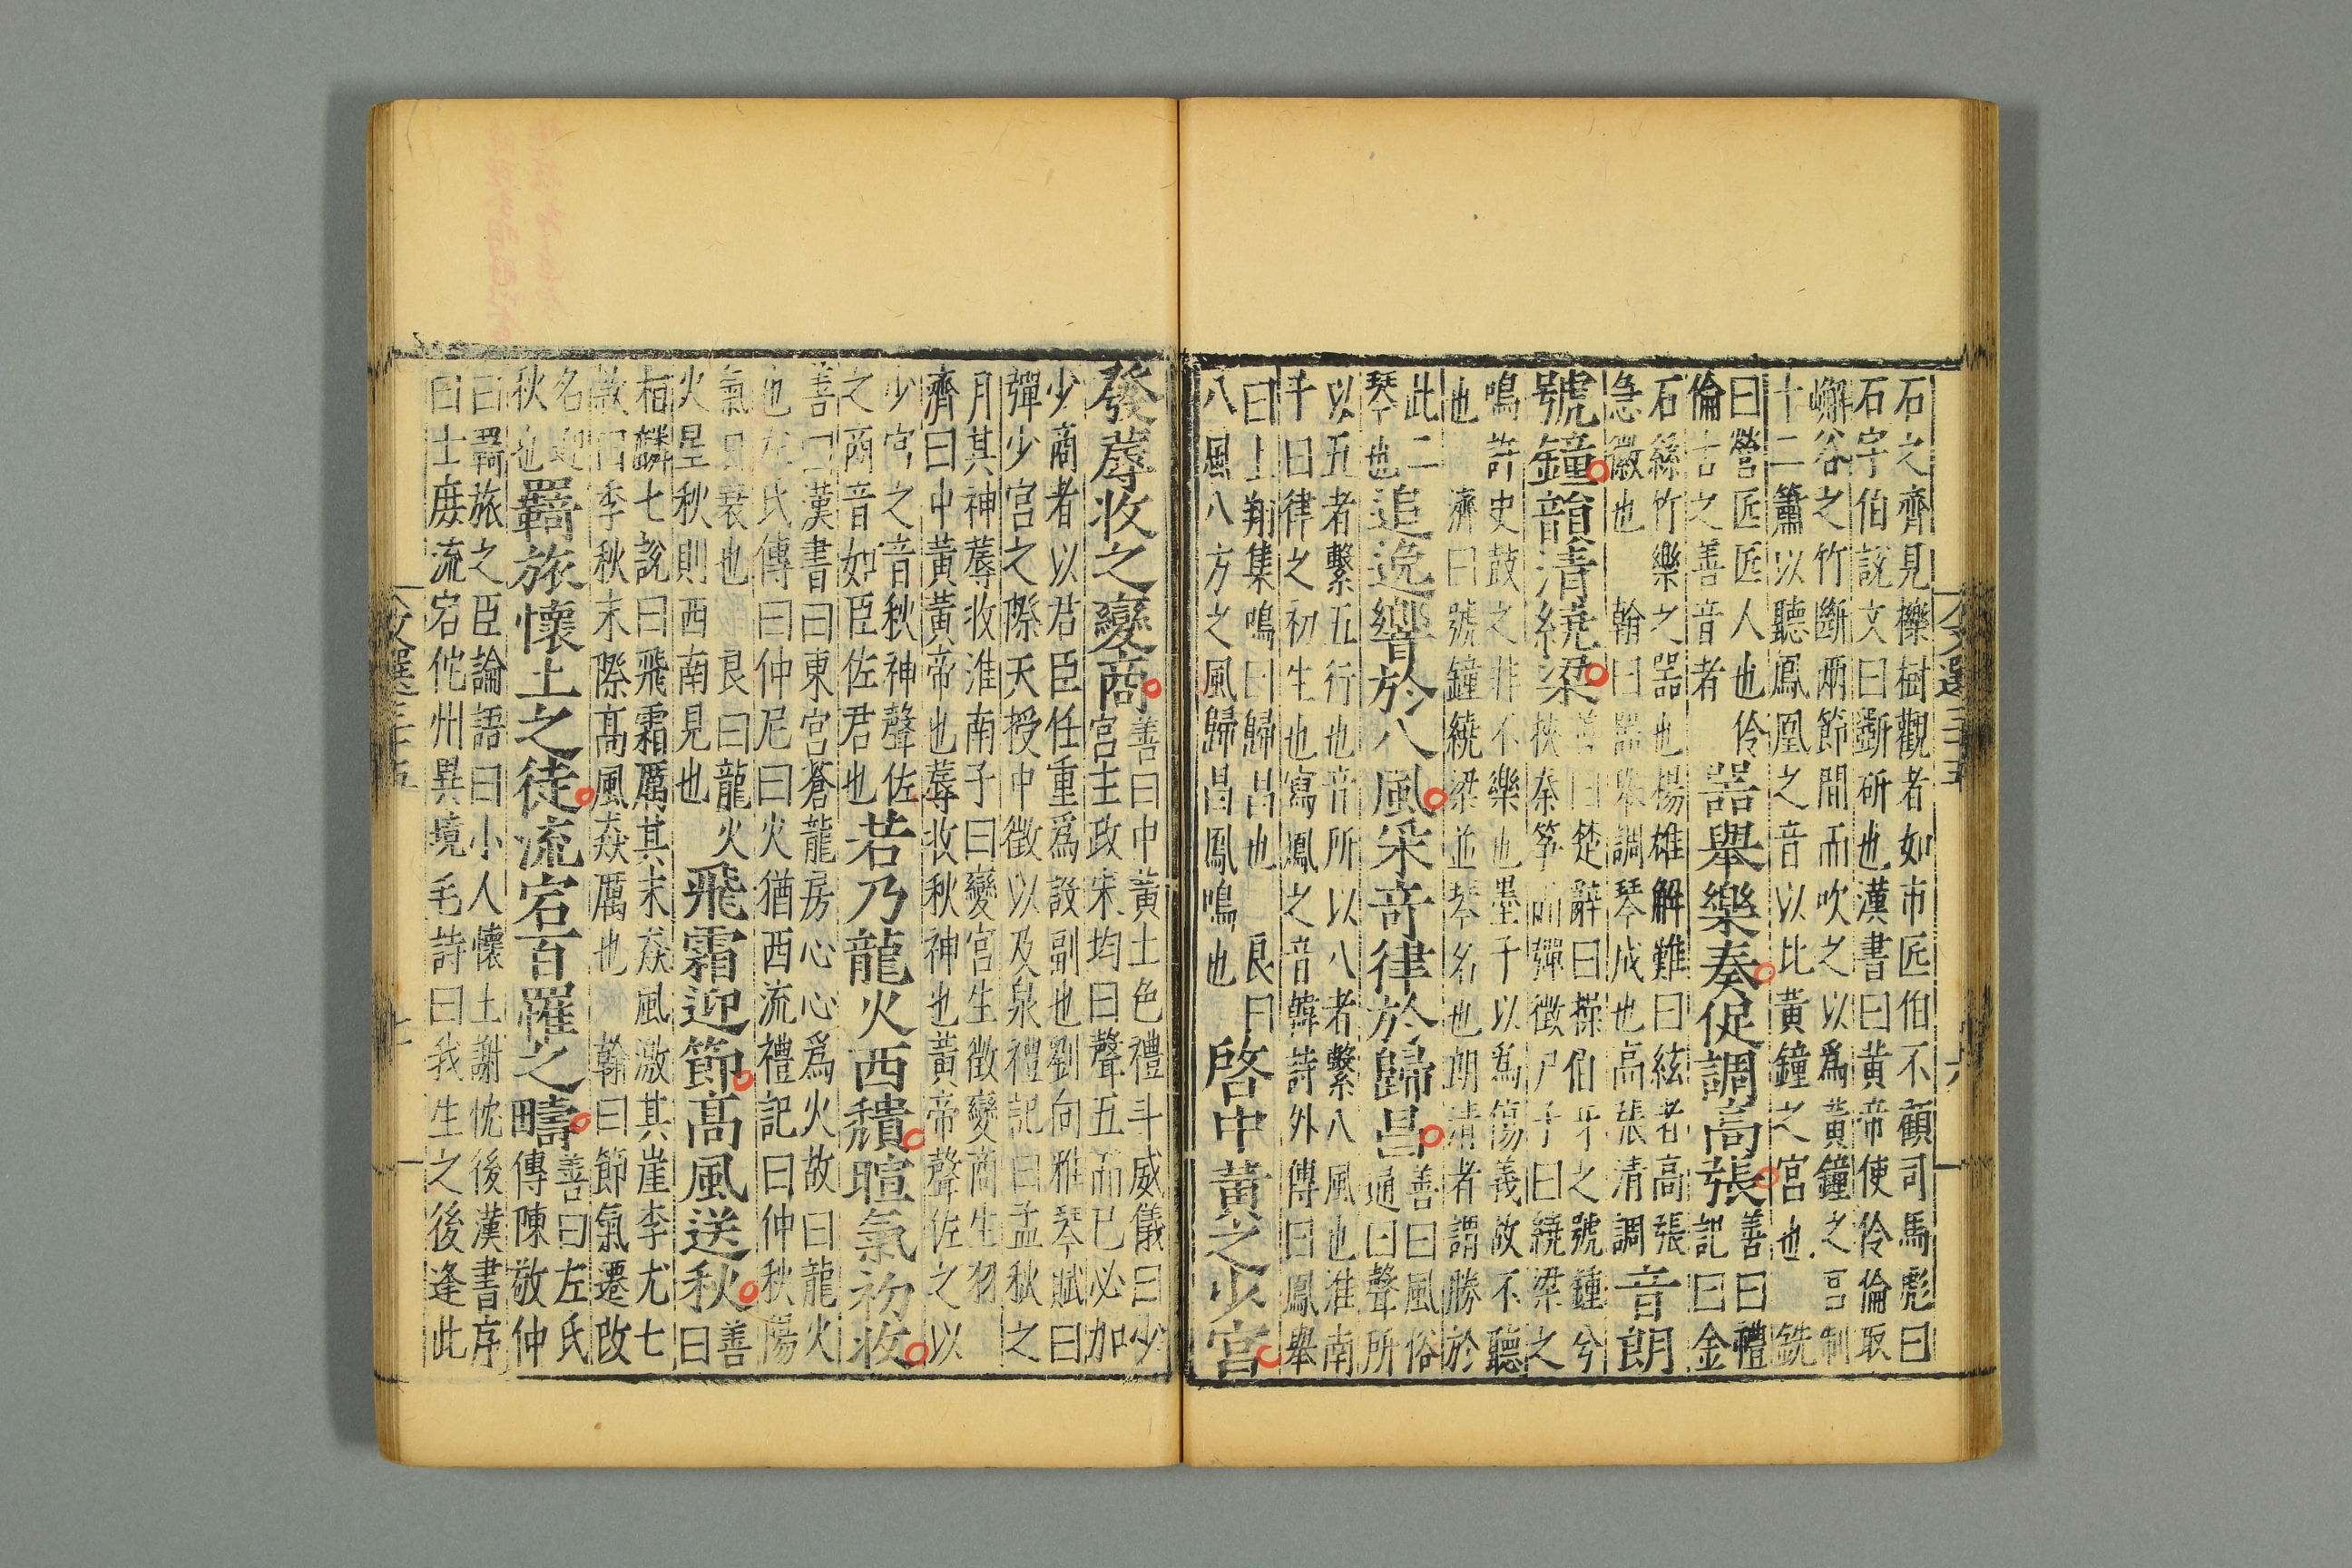 文選三十五 六
石之齊見櫟樹觀者如市匠伯不顧司馬彪曰
石字伯說文曰斲斫也漢書曰黃帝使伶倫取
嶰谷之竹斷兩節間而吹之以爲黃鐘之宮制
十二簫以聽鳳凰之音以比黃鐘之宮也 銑
曰營匠匠人也伶
倫古之善音者
器舉樂奏促調高張
善曰禮
記曰金
石絲竹樂之器也楊雄解難曰絃者高張
急徽也 翰曰器舉調琴成也高張清調
音朗
號鐘韻清繞梁
善曰楚辭曰操伯牙之號鍾兮
挾秦筝而彈徵尸子曰繞梁之
鳴許史鼓之非不樂也墨子以爲傷義故不聽
也 濟曰號鐘繞梁並琴名也朗清者謂勝於
此二
琴也
追逸響於八風采奇律於歸昌
善曰風俗
通曰聲所
以五者繫五行也音所以八者繫八風也淮南
子曰律之初生也寫鳳之音韓詩外傳曰鳳舉
曰上翔集鳴曰歸昌也 良曰
八風八方之風歸昌鳳鳴也
啓中黃之少宮
發蓐收之變商
善曰中黃土色禮斗威儀曰少
宮主政宋均曰聲五而已必加
少商者以君臣任重爲設副也劉向雅琴賦曰
彈少宮之際天授中徵以及泉禮記曰孟秋之
月其神蓐收淮南子曰變宮生徵變商生羽
濟曰中黃黃帝也蓐收秋神也黃帝聲佐之以
少宮之音秋神聲佐
之商音如臣佐君也
若乃龍火西穨暄氣初收
善曰漢書曰東宮蒼龍房心心爲火故曰龍火
也左氏傳曰仲尼曰火猶西流禮記曰仲秋陽
氣日衰也 良曰龍火
火星秋則西南見也
飛霜迎節高風送秋
善
曰
栢麟七說曰飛霜厲其末猋風激其崖李尤七
款曰季秋末際高風猋厲也 翰曰節氣遷改
名迎
秋也
羇旅懷土之徒流宕百罹之疇
善曰左氏
傳陳敬仲
曰羇旅之臣論語曰小人懷土謝忱後漢書序
曰士庶流宕佗州異境毛詩曰我生之後逢此
文選三十五 七